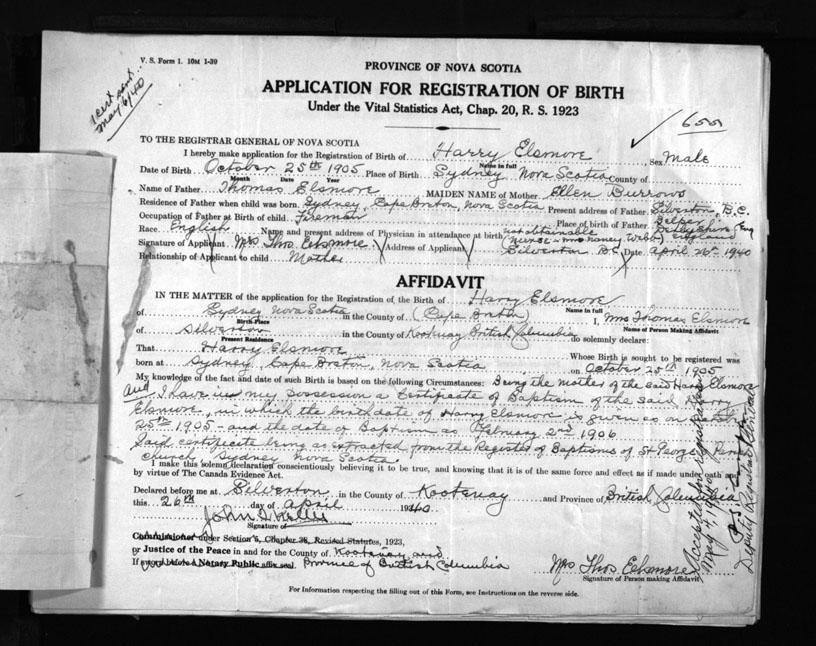 V. S. Form 1. 10M 1-39
PROVINCE OF NOVA SCOTIA
APPLICATION FOR REGISTRATION OF BIRTH
Under the Vital Statistics Act, Chap. 20, R. S. 1923
1 cert sent
May 6/40
TO THE REGISTRAR GENERAL OF NOVA SCOTIA
I hereby make application for the Registration of Birth of Harry Elsmore Sex Male
Name in full
Date of Birth October 25th 1905 Place of Birth Sydney Nova Scotia County of
Month Date Year
Name of Father Thomas Elsmore MAIDEN NAME of Mother Ellen Burrows
Residence of Father when child was born. Sydney, Cape Breton, Nova Scotia Present address of Father Silverton, B.C.
Occupation of Father at Birth of child Fireman Place of birth of Father Belper Derbyshire Eng
Race English Name and present address of Physician in attendance at birth not obtainable England
Nurse - Mrs Nancy Webb
Signature of Applicant Mrs Thos Elsmore Address of Applicant Silverton B.C. Date April 26th 1940
Relationship of Applicant to child Mother
AFFIDAVIT
IN THE MATTER of the application for the Registration, of the Birth of Harry Elsmore
Name in full
of Sydney Nova Scotia in the County of (Cape Breton) I, Mrs Thomas Elsmore
Birth-Place Name of Person Making Affidavit
of Silverton in the County of Kootenay British Columbia do solemnly declare:
Present Residence
That Harry Elsmore Whose Birth is sought to be registered was
born at Sydney, Cape Breton, Nova Scotia on October 25th 1905
My knowledge of the fact and date of such Birth is based on the following Circumstances: Being the mother of the said Harry Elsmore
and I have in my possession a Certificate of Baptism of the said Harry
Elsmore, in which the birthdate of Harry Elsmore is given as on October
25th 1905 - and the date of Baptism as February 2nd 1906
Said certificate being as extracted from the Register of Baptisms of St George's
Church, Sydney Nova Scotia
I make this solemn declaration conscientiously believing it to be true, and knowing that it is of the same force and effect as if made under oath and
by virtue of The Canada Evidence Act.
Declared before me at Silverton in the County of Kootenay and Province of British Columbia
this 26th day of April 1940
Signature of
Commissioner under Section 5, Chapter 38, Revised Statutes, 1923,
or Justice of the Peace in and for the County of Kootenay and
If sworn before a Notary Public affix seal. Province of British Columbia
Mrs Thos Elsmore
Signature of Person making Affidavit
For Information respecting the filling out of this Form, see Instructions on the reverse side.
Accepted for registration
May 7, 1940
Deputy Registrar General